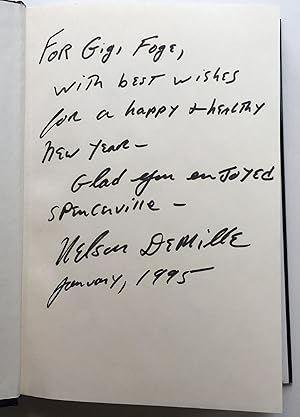 For Gigi Foge,
with best wishes
for a happy + healthy
new year—
Glad you enjoyed
Spencerville—
Nelson DeMille
January, 1995